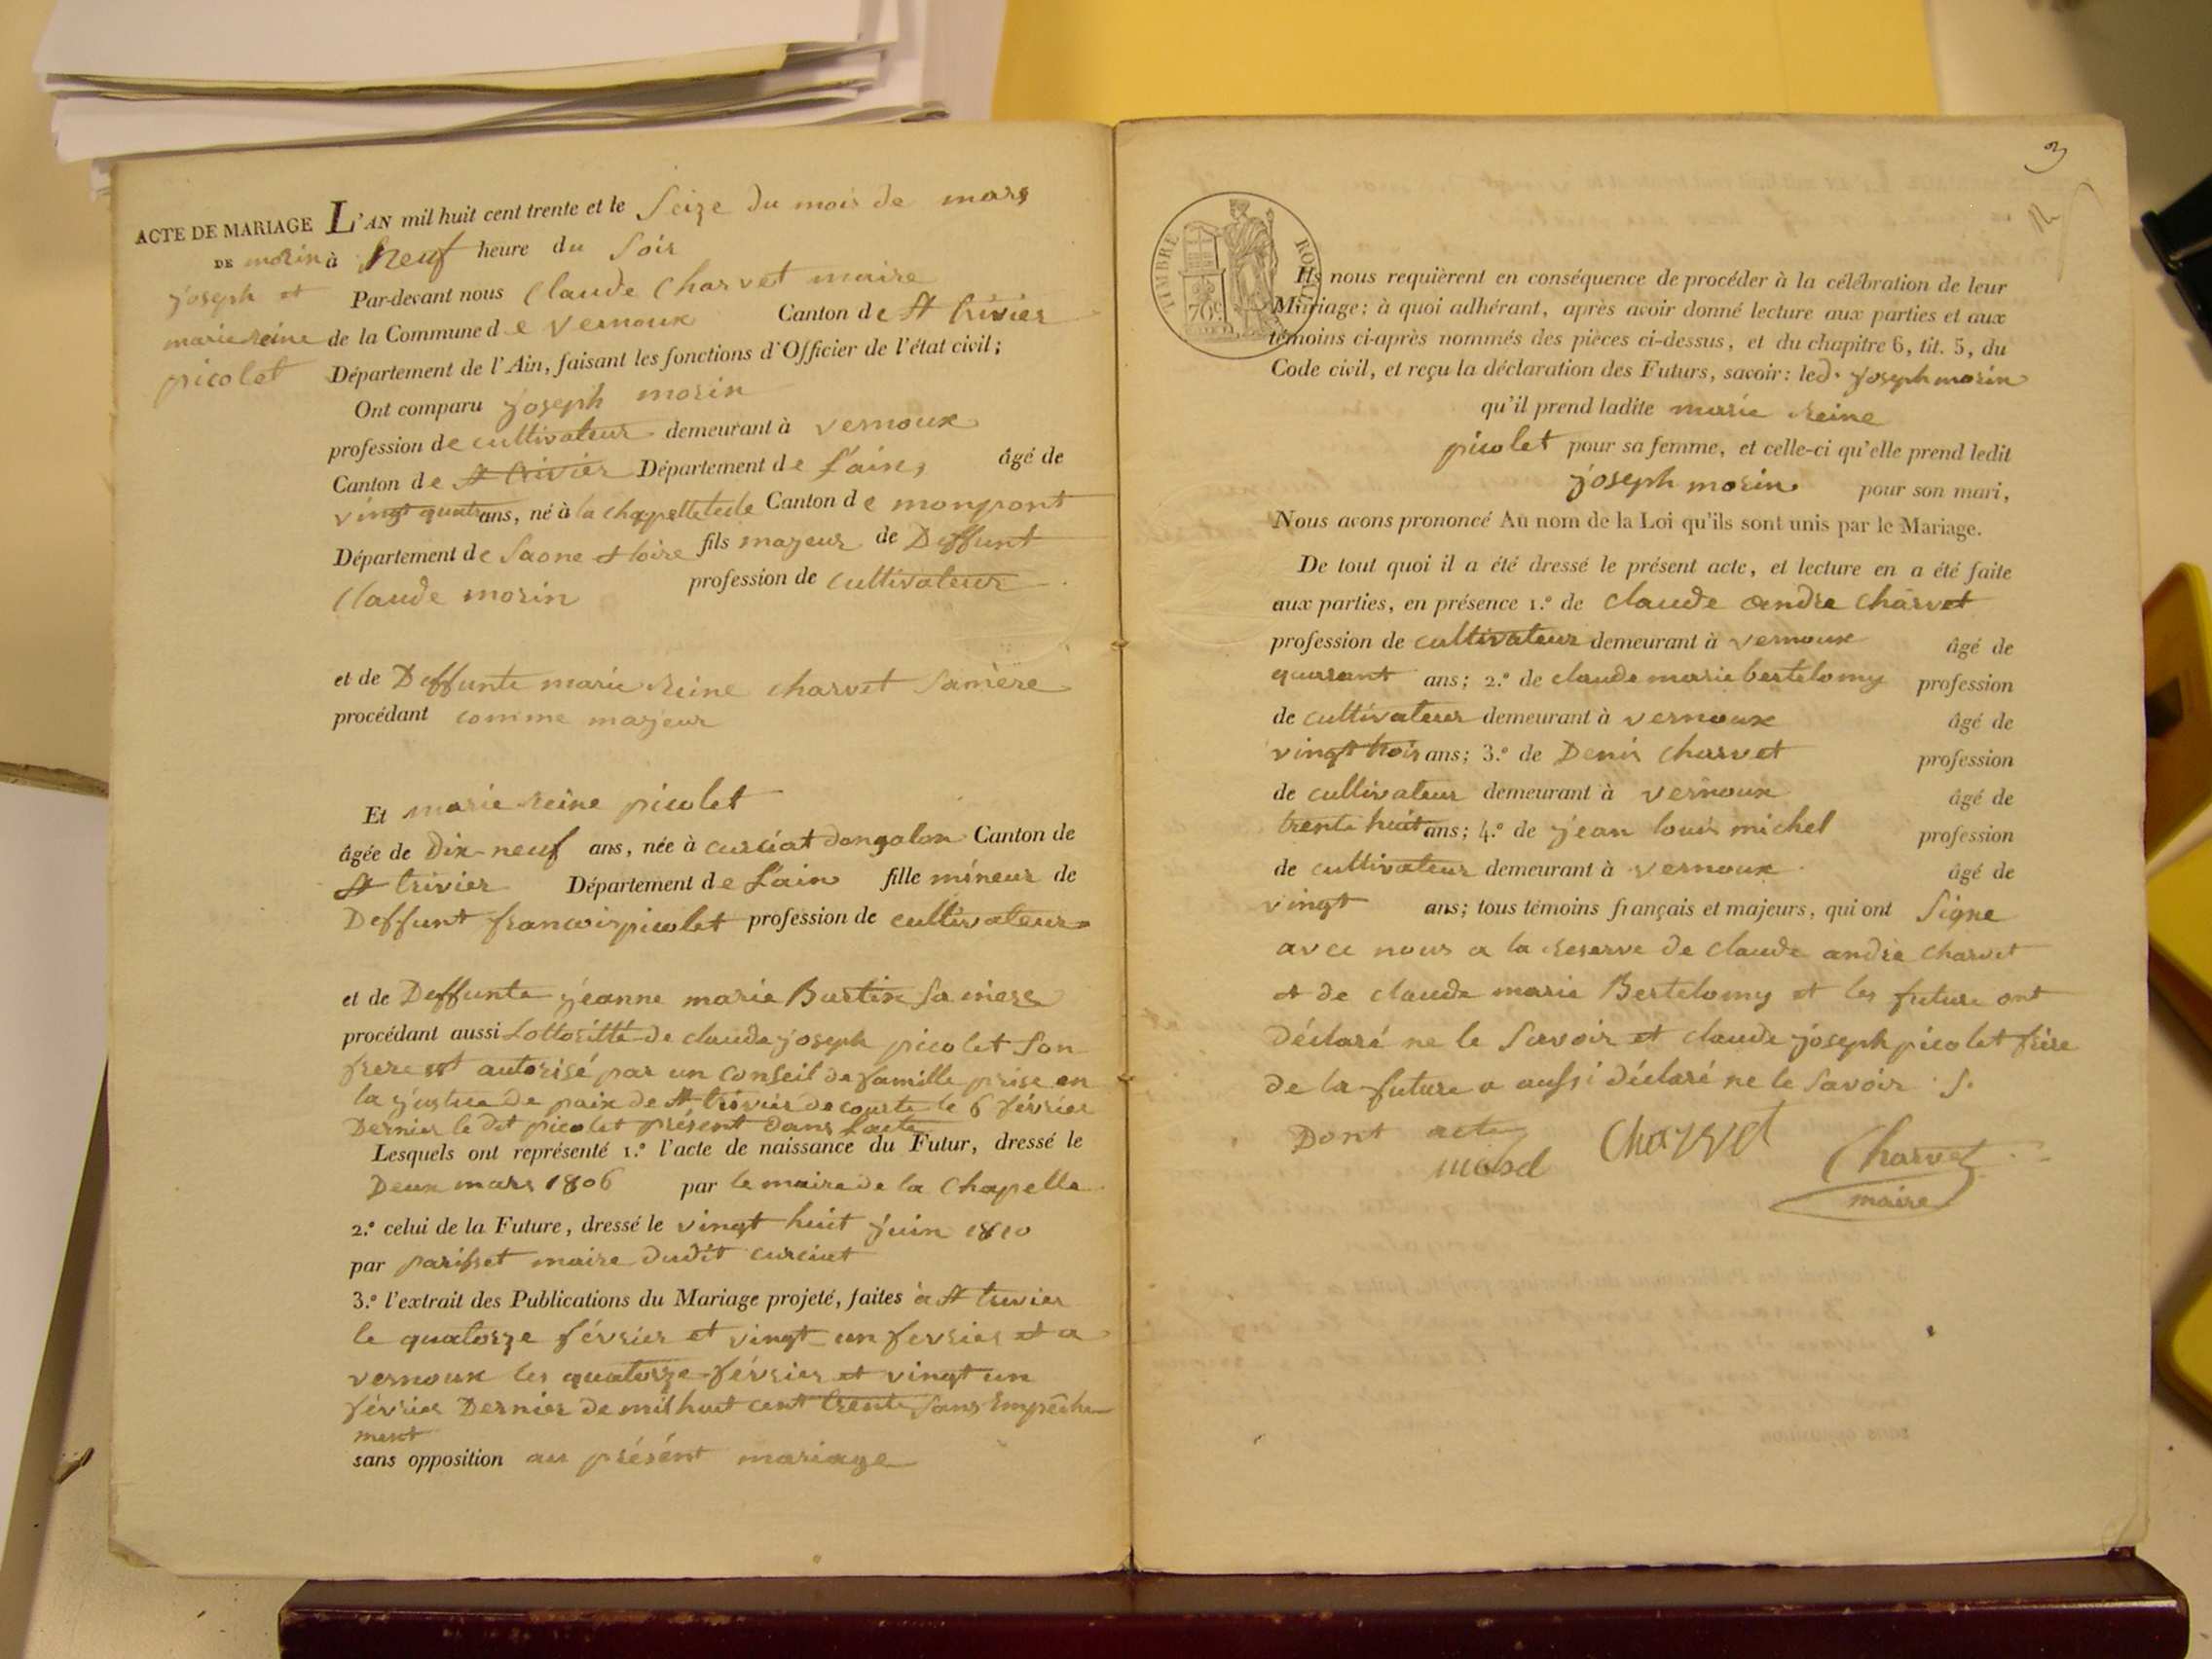 ACTE DE MARIAGE
DE morin
joseph et
marie reine
picolet
L'AN mil huit cent trente et le Seize du mois de mars
à Neuf heure du Soir
Par-devant nous Claude Charvet maire
de la Commune de Vernoux Canton de St trivier
Département de l'Ain, faisant les fonctions d'Officier de l'état civil;
Ont comparu joseph morin
profession de cultivateur demeurant à vernoux
Canton de St trivier Département de L'ain, âgé de
vingt quatre ans, né à la chapelle Canton de monpont
Département de Saone et loire fils majeur de Deffunt
Claude morin profession de cultivateur
et de Deffunte marie reine charvet Samère
procédant comme majeur
Et marie reine picolet
âgée de Dix-neuf ans, née à curciat dongalon Canton de
St trivier Département de Lain fille mineur de
Deffunt francois picolet profession de cultivateur
et de Deffunte jeanne marie Burtin Sa mere
procédant aussi de claude joseph picolet Son
frere autorisé par un Conseil de famille prise en
la justice de paix de St trivier de courte le 6 février
Dernier le dit picolet présent dans Lacte
Lesquels ont représenté 1.º l'acte de naissance du Futur, dressé le
Deux mars 1806 par le maire de la Chapelle
2.º celui de la Future, dressé le vingt huit juin 1810
par parisset maire dudit curciat
3.º l'extrait des Publications du Mariage projeté, faites à St trivier
le quatorze février et vingt-un fevrier et a
vernoux les quatorze février et vingt un
février Dernier de mil huit cent trente Sans Empêche
ment
sans opposition au présént mariage
3
TIMBRE ROYAL
70c
Ils nous requièrent en conséquence de procéder à la célébration de leur
Mariage: à quoi adhérant, après avoir donné lecture aux parties et aux
témoins ci-après nommés des pièces ci-dessus, et du chapitre 6, tit. 5, du
Code civil, et reçu la déclaration des Futurs, savoir: led. joseph morin
qu'il prend ladite marie reine
picolet pour sa femme, et celle-ci qu'elle prend ledit
joseph morin pour son mari,
Nous avons prononcé Au nom de la Loi qu'ils sont unis par le Mariage.
De tout quoi il a été dressé le présent acte, et lecture en a été faite
aux parties, en présence 1.º de claude andre charvet
profession de cultivateur demeurant à vernoux âgé de
quarant ans; 2.º de claude marie bertelomy profession
de cultivateur demeurant à vernoux âgé de
vingt trois ans; 3.º de Denis charvet profession
de cultivateur demeurant à vernoux âgé de
trente huit ans; 4.º de jean louis michel profession
de cultivateur demeurant à vernoux âgé de
vingt ans; tous témoins français et majeurs, qui ont Signe
avec nous a la reserve de claude andré charvet
et de claude marie Bertelomy et les future ont
Déclaré ne le Savoir et claude joseph picolet frère
de la future a aussi déclaré ne le savoir
Dont acte
Charvet
Charvet
maire